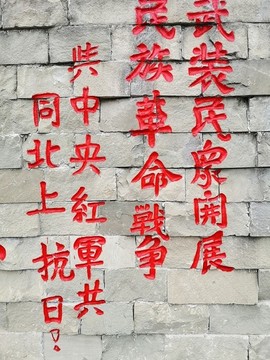 武装民衆開展
民族革命戦争
與中央紅軍共
同北上抗日！